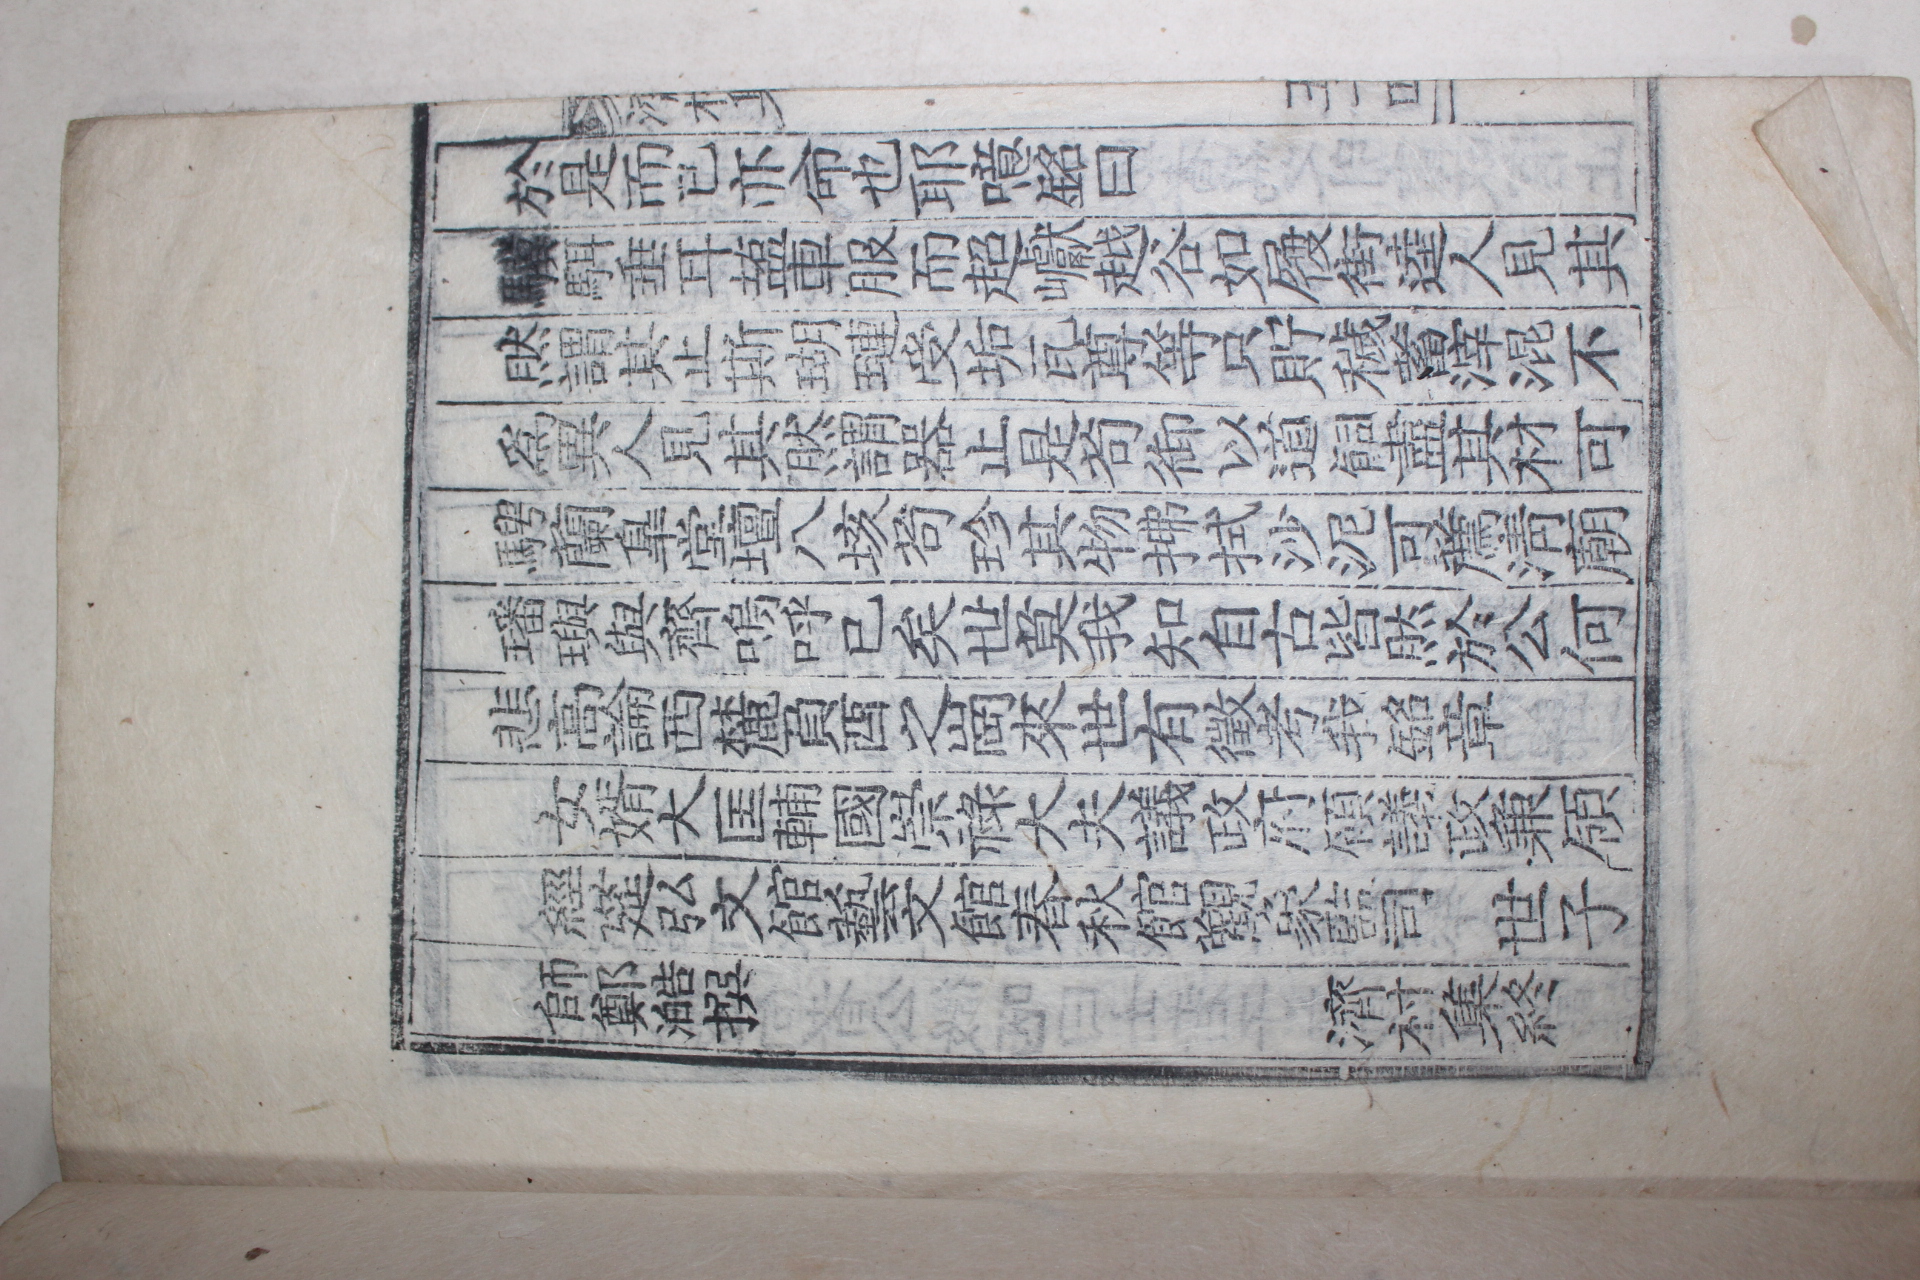 於是而已亦命也耶噫銘曰
驥駬垂耳盐車服而超巘越谷如履街逵人見其
然謂其止斯瑚璉受垢瓦尊等只貯穢蓄滓混不
為異人見其然謂器止是苟御以道飼盡其材可
騁蘭皐堂壇八垓苟珍其物拂拭沙泥可薦淸廟
璠璵與齊嗚呼已矣世莫我知自古皆然於公何
悲高論西麓負酉之崗來世有徵考我銘章
女婿大匡輔國崇祿大夫議政府領議政兼領
經筵弘文館藝文館春秋館觀象監司 世子
師鄭澔撰 濟村集終
濟村集 五十四